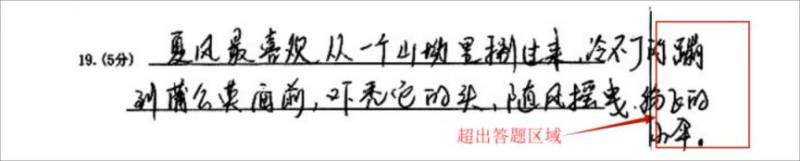 19.(5分) 夏风最喜欢从一个山坳里捌过来,冷不丁的蹦
到蒲公英面前,吓秃它的头,随风摇曳,纷飞的
小伞。
超出答题区域